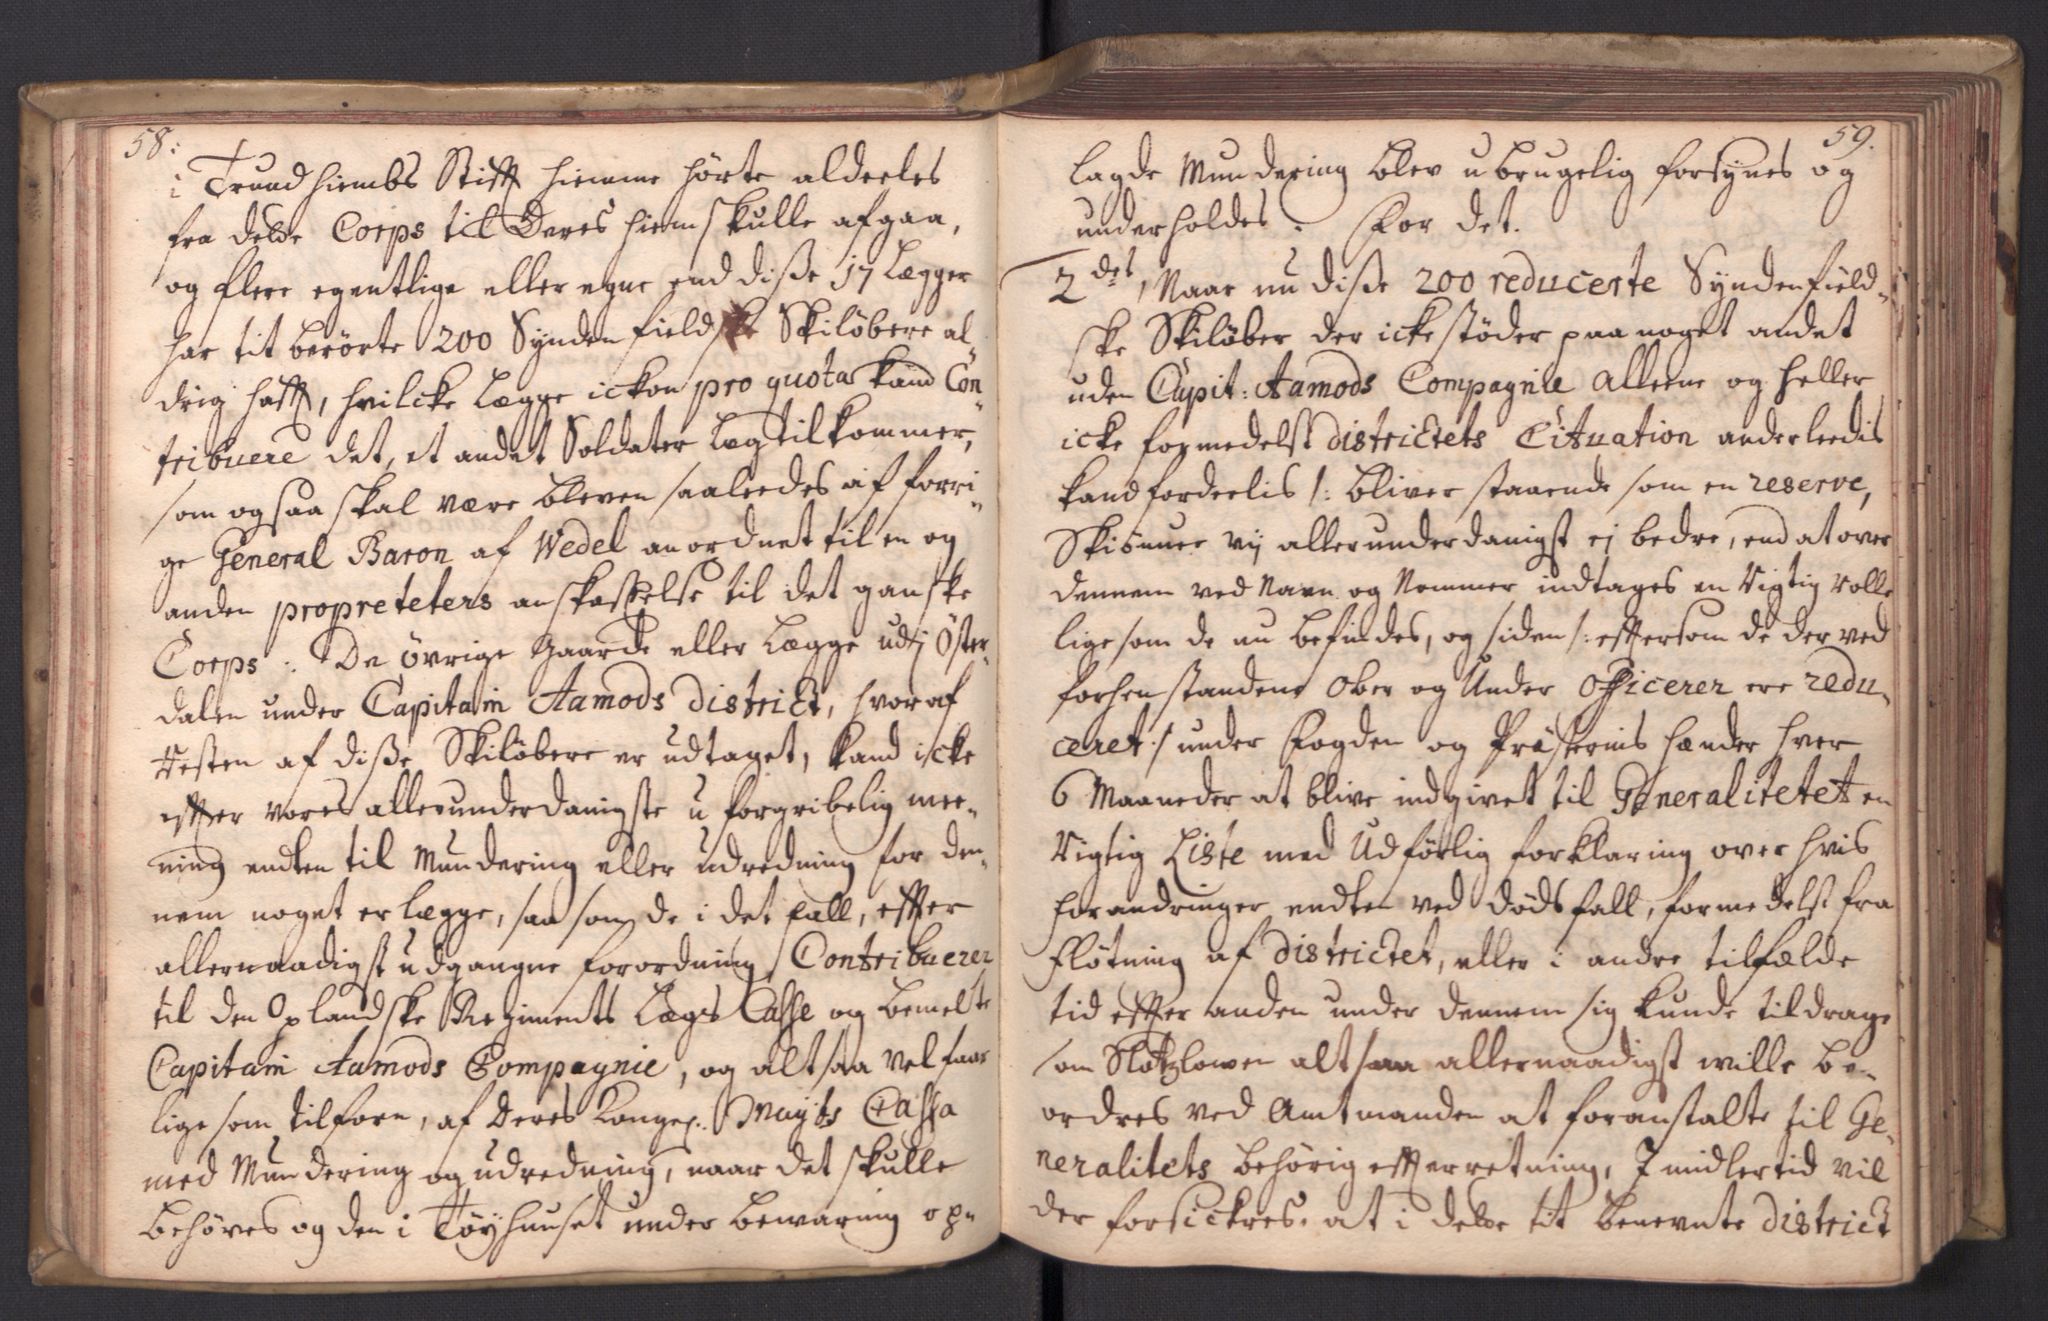 58:
i Trundhiembs Stifft hiemme hörte aldeeles
fra dette Corps til Deres hiem skulle afgaa,
og flere egentlige eller egne end diße 17 Lægger
har tit berörte 200 Syndenfieldske Skilöbere al„
drig hafft, hvilcke Lægge ickon pro quota kand Con„
tribuere det, et andet Soldater Læg tilkommer,
som ogsaa skal være bleven saaleedes af forri„
ge General Baron af Wedel anordnet til en og
anden propreteters anskaffelse til det ganske
Corps :. De övrige Gaarde eller Lægge udj Öster„
dalen under Capitain Aamods District, hvoraf
Resten af diße Skilöbere er udtaget, kand icke
effter vores allerunderdanigste uforgribelig mee„
ning endten til Mundering eller udredning for den„
nem noget erlægge, saa som de i det fall, effter
allernaadigst udgangne forordning Contribuerer
til den Oplandske Regiments Lægs Casse og bemelte
Capitain Aamods Compagnie, og altsaa vel faar
lige som tilforn, af Deres Kongel: Mayts Cassa
med Mundering og udredning, naar det skulle
behöves og den i Töyhuuset under bewaring op„
59.
lagde Mundering blev ubrugelig forsynes og
underholdes. For det.
2des, Naar nu diße 200 reducerte Syndenfield„
ske Skilöber der icke stöder paa noget andet
uden Capit: Aamods Compagnie alleene og heller
icke formedelst districtets Cituation anderleedis
kand fordeelis /: bliver staaende som en reserve,
Skiönner vij allerunderdanigst ej bedre, end at over
dennem ved Navn og Nommer indtages en Rigtig Rolle
lige som de nu befindes, og siden /: effter som de der ved
forhen standene Ober og Under Officerer ere redu„
ceret :/ under Fogden og Præsternis hænder hver
6 Maaneder at blive indgivet til Generalitetet en
Rigtig Liste med Udförlig forklaring over hvis
forandringer endten ved Dödsfall, formedelst fra
flötning af districtet, eller i andre tilfælde
tid effter anden under dennem sig kunde tildrage
som Slotzlowen altsaa allernaadigst wille be„
ordres ved Amtmanden at foranstalte til Ge„
neralitets behörig effterretning, Imidlertid vil
der forsickres, at i dette tit benevnte District